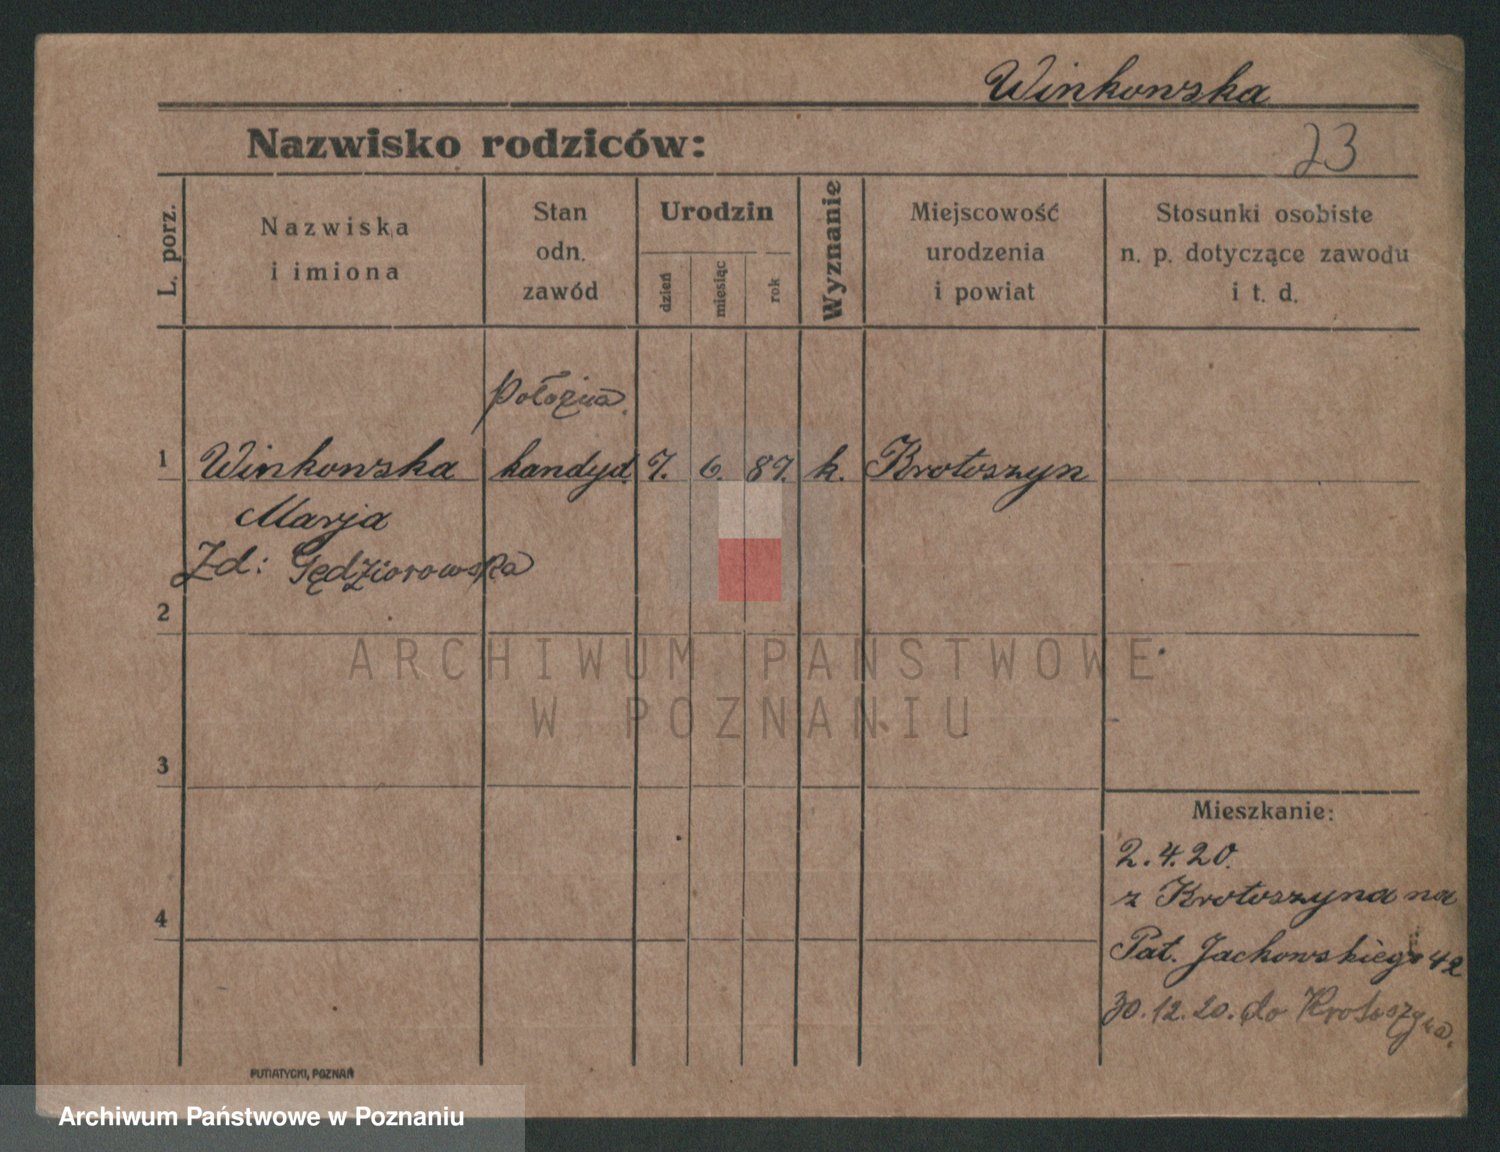 Winkowska
Nazwisko rodziców:
23
L. porz.
Nazwiska
i imiona
Stan
odn.
zawód
Urodzin
dzień
miesiąc
rok
Wyznanie
Miejscowość
urodzenia
i powiat
Stosunki osobiste
n. p. dotyczące zawodu
i t. d.
Położna
1 Winkowska kandyd. 7. 6. 87. k. Krotoszyn
Marja
Zd: Gędziorowska
2
ARCHIWUM PAŃSTWOWE
W POZNANIU
3
Mieszkanie:
2.4.20.
z Krotoszyna na
4
Pat. Jackowskiego 42
30.12.20. do Krotoszyna.
PUTIATYCKI, POZNAŃ
Archiwum Państwowe w Poznaniu